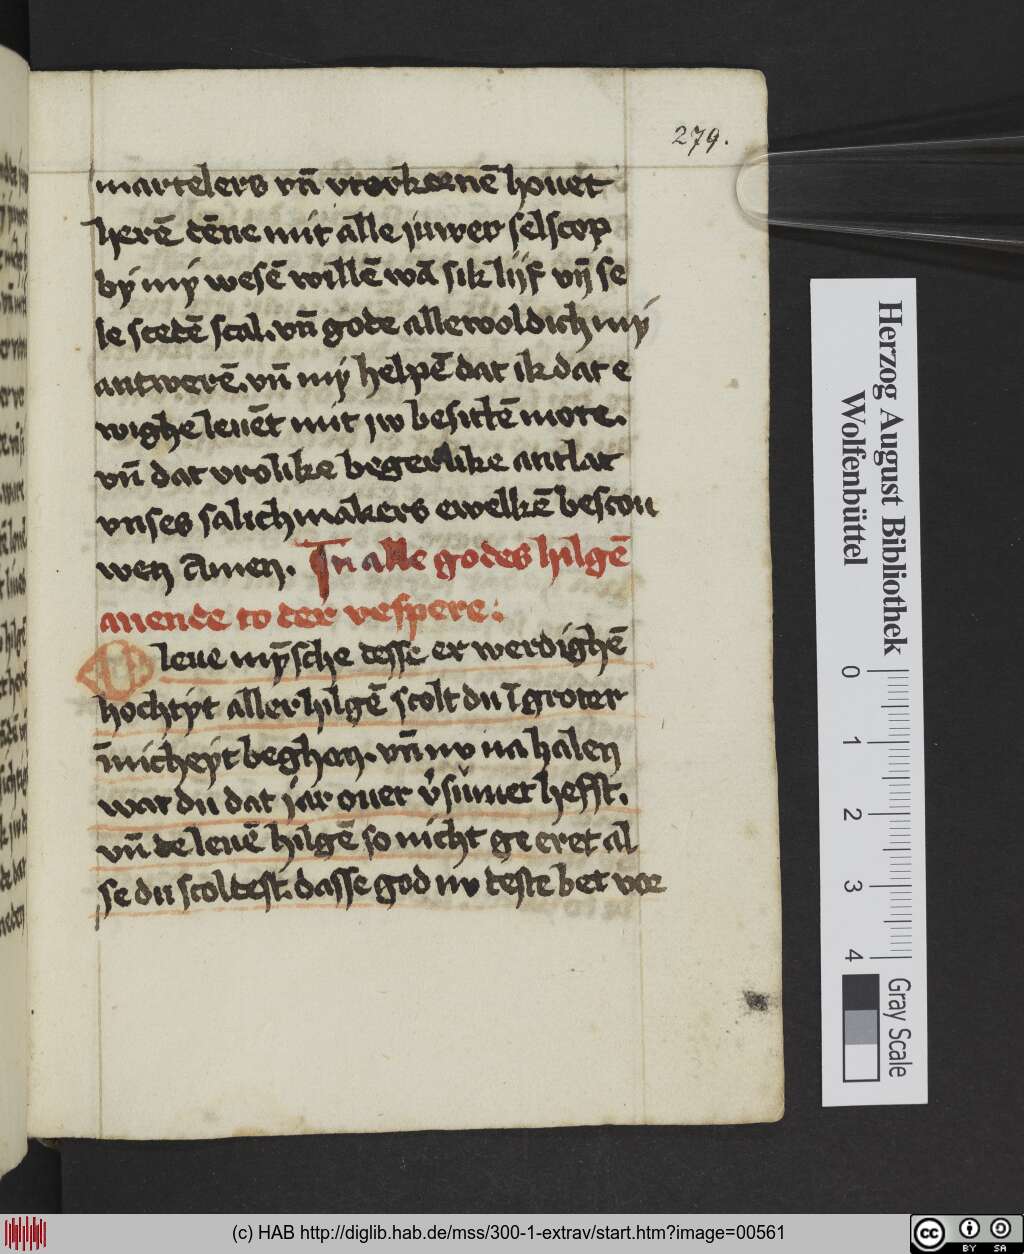 279.
martelers vn̄ vtorkornē houet
herē dēne mit alle juwer selscop
by my wesē willē wā sik lijf vn̄ se
le scedē scal. vn̄ gode allewoldich my
antwerē. vn̄ my helpē dat ik dat e
wighe leuēt mit jw besittē mote.
vn̄ dat vrolike begerlike antlat
vnses salichmakers ewelkē bescou
wen Amen. In alle godes hilgē
auende to der vespere:
O leue mȳsche desse er werdighē
hochtyt aller hilgē scolt du ī groter
īnicheyt beghen. vn̄ nv na halen
wat du dat jar ouer v̄sumet hefft.
vn̄ de leuē hilgē so nicht ge eret al
se du scoldest. dasse god nv deste bet vor
Herzog August Bibliothek
Wolfenbüttel
0 1 2 3 4
Gray Scale
(c) HAB http://diglib.hab.de/mss/300-1-extrav/start.htm?image=00561
cc BY SA